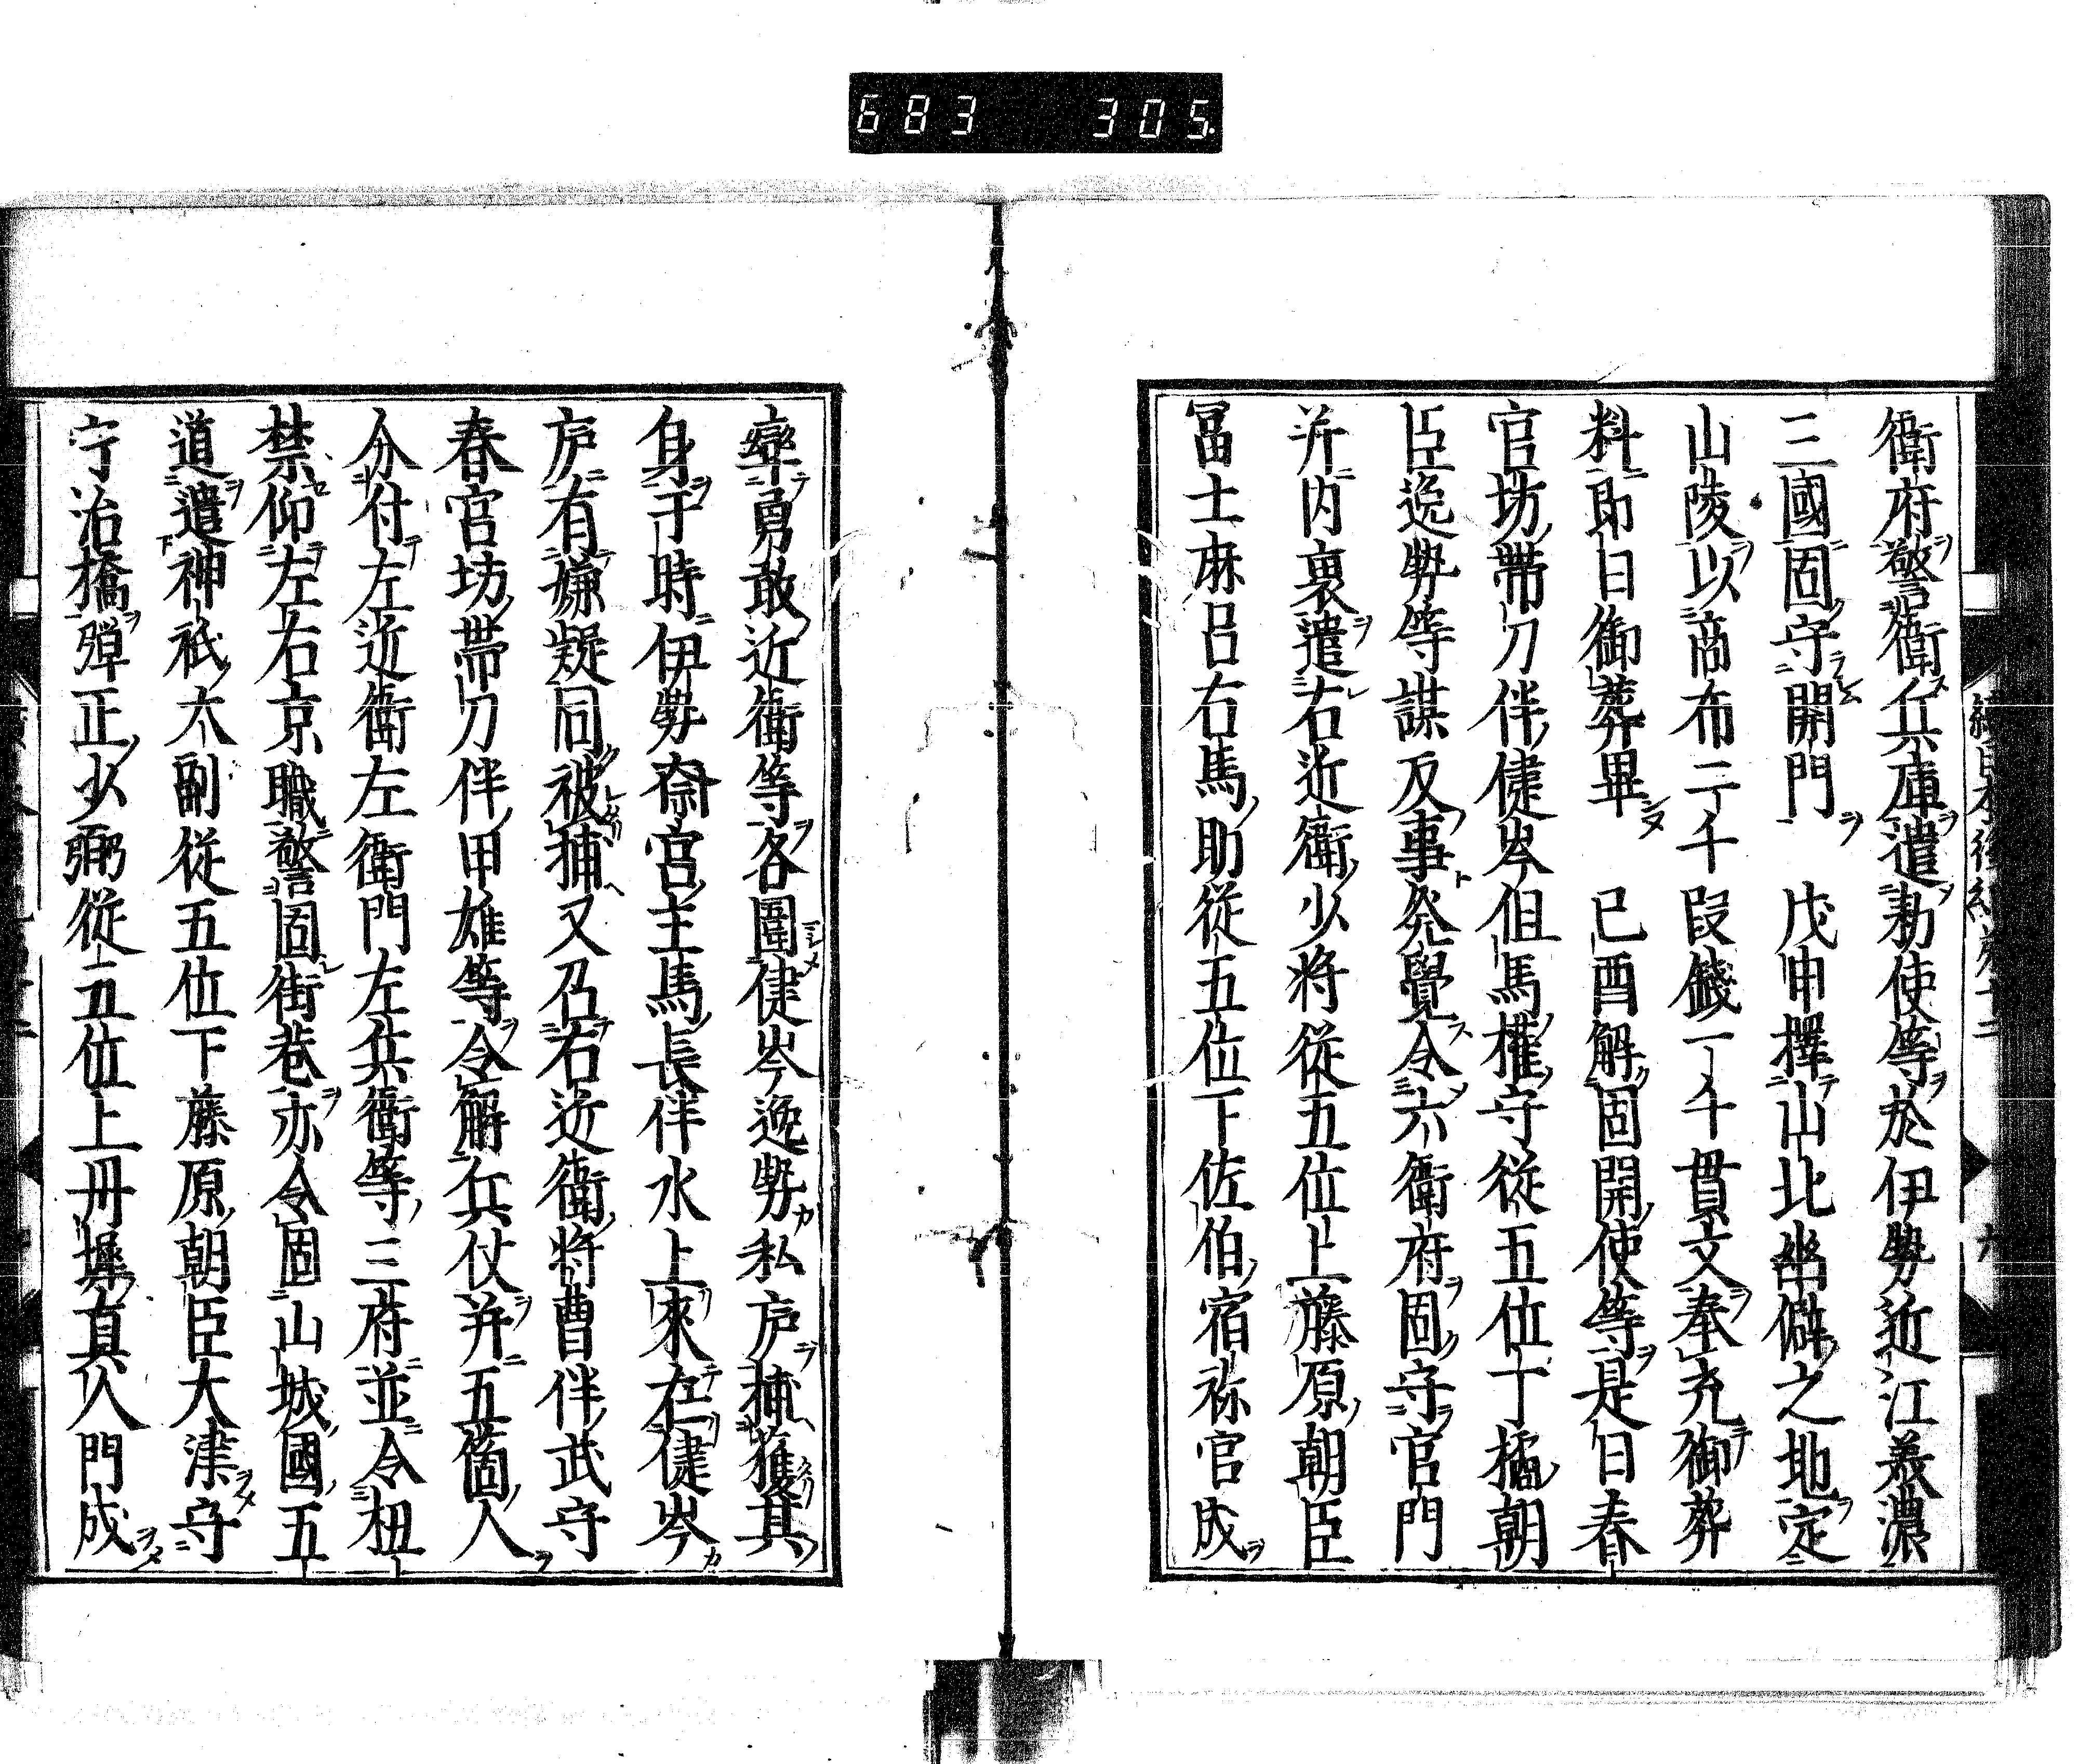 683 305
衛府警衛兵庫遣勅使等於伊勢近江美濃
三國固守開門 戊申擇山北幽僻之地定
山陵以商布二千段錢一千貫文奉充御葬
料即日御葬畢 已酉解固開使等是日春
官坊帶刀伴健岑但馬權守從五位下橘朝
臣逸勢等謀反事発覺令六衛府固守官門
并内裏遣右近衛少将從五位上藤原朝臣
冨士麻呂右馬助從五位下佐伯宿祢官成
率勇敢近衛等各圍健岑逸勢私庐捕獲其
身于時伊勢斎宮主馬長伴水上來在健岑
庐有嫌疑同被捕又召右近衛将曹伴武守
春宮坊帶刀伴甲雄等令解兵仗并五箇人
分付左近衛左衛門左兵衛等三府並令杻
禁仰左右京職警固街巷亦令固山城國五
道遣神祇大副從五位下藤原朝臣大津守
宁治橋彈正少弼從五位上丹墀真人門成